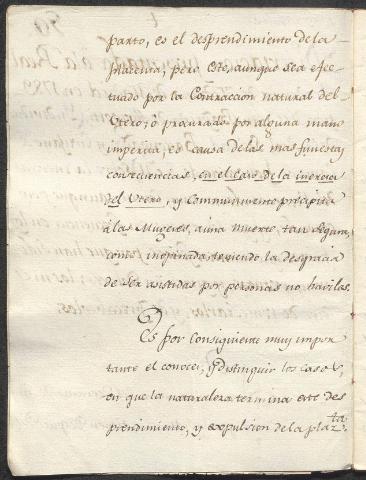 parto, es el desprendimiento de la
Placenta, pero este, aunque sea efec-
tuado por la Contraccion natural del
Utero; ó procurado por alguna mano
imperita, es causa de las mas funestas
consecuencias, en el caso de la inercia
del Utero, y Communmente precipita
á las Mugeres, a una muerte tan segura,
como inopinada, teniendo la desgracia
de ser asistidas por personas no haviles.
Es por consiguiente muy impor-
tante el conocer, y distinguir los casos,
en que la naturaleza termina este des-
prendimiento, y expulsion de la plazta.